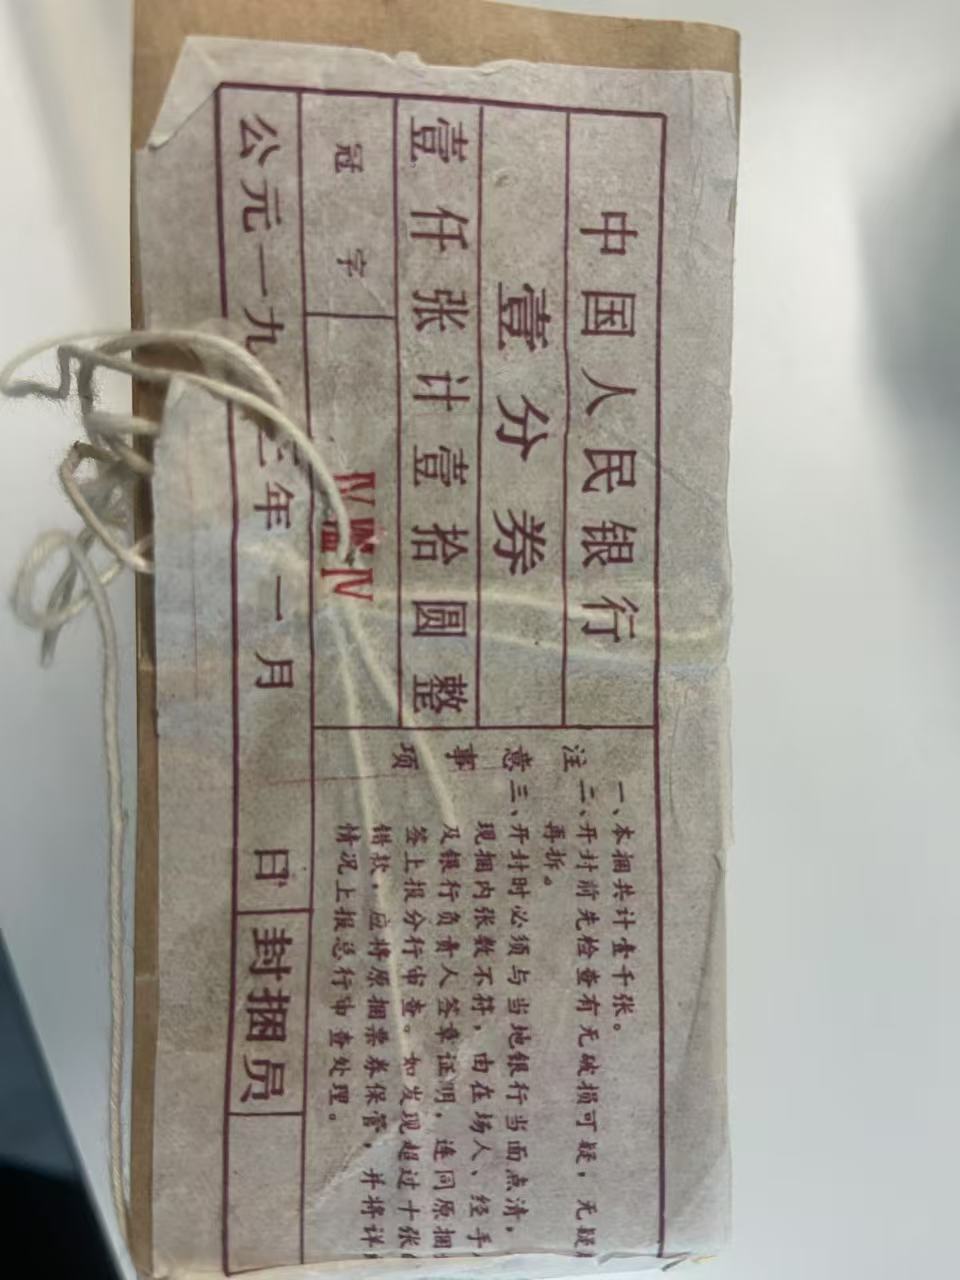 中国人民银行
壹分券
壹仟张计壹拾圆整
冠字
Ⅳ Ⅳ
公元一九 三年一月 日
封捆员
注意事项
一、本捆共计壹千张。
二、开封前先检查有无破损可疑，无疑
再拆。
三、开封时必须与当地银行当面点清，
现捆内张数不符，由在场人、经手
及银行负责人签章证明，连同原捆
签上报分行审查。如发现超过十张
错款，应将原捆票券保管，并将详
情况上报总行审查处理。